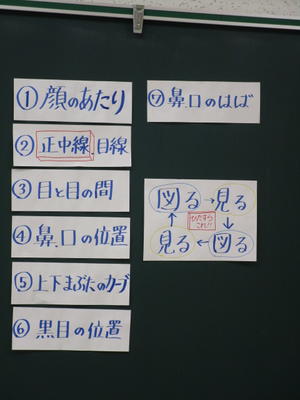 ①顔のあたり
②正中線、目線
③目と目の間
④鼻、口の位置
⑤上下まぶたのカーブ
⑥黒目の位置
⑦鼻、口のはば
図る→見る
↑ ひたすら ↓
これ!!
見る←図る